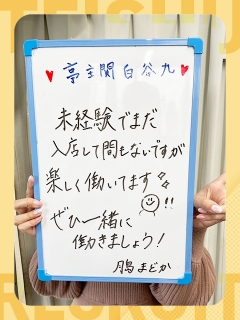 ♥亭主関白谷九♥
未経験でまだ
入店して間もないですが
楽しく働いてます
ぜひ一緒に
働きましょう!
月島まどか